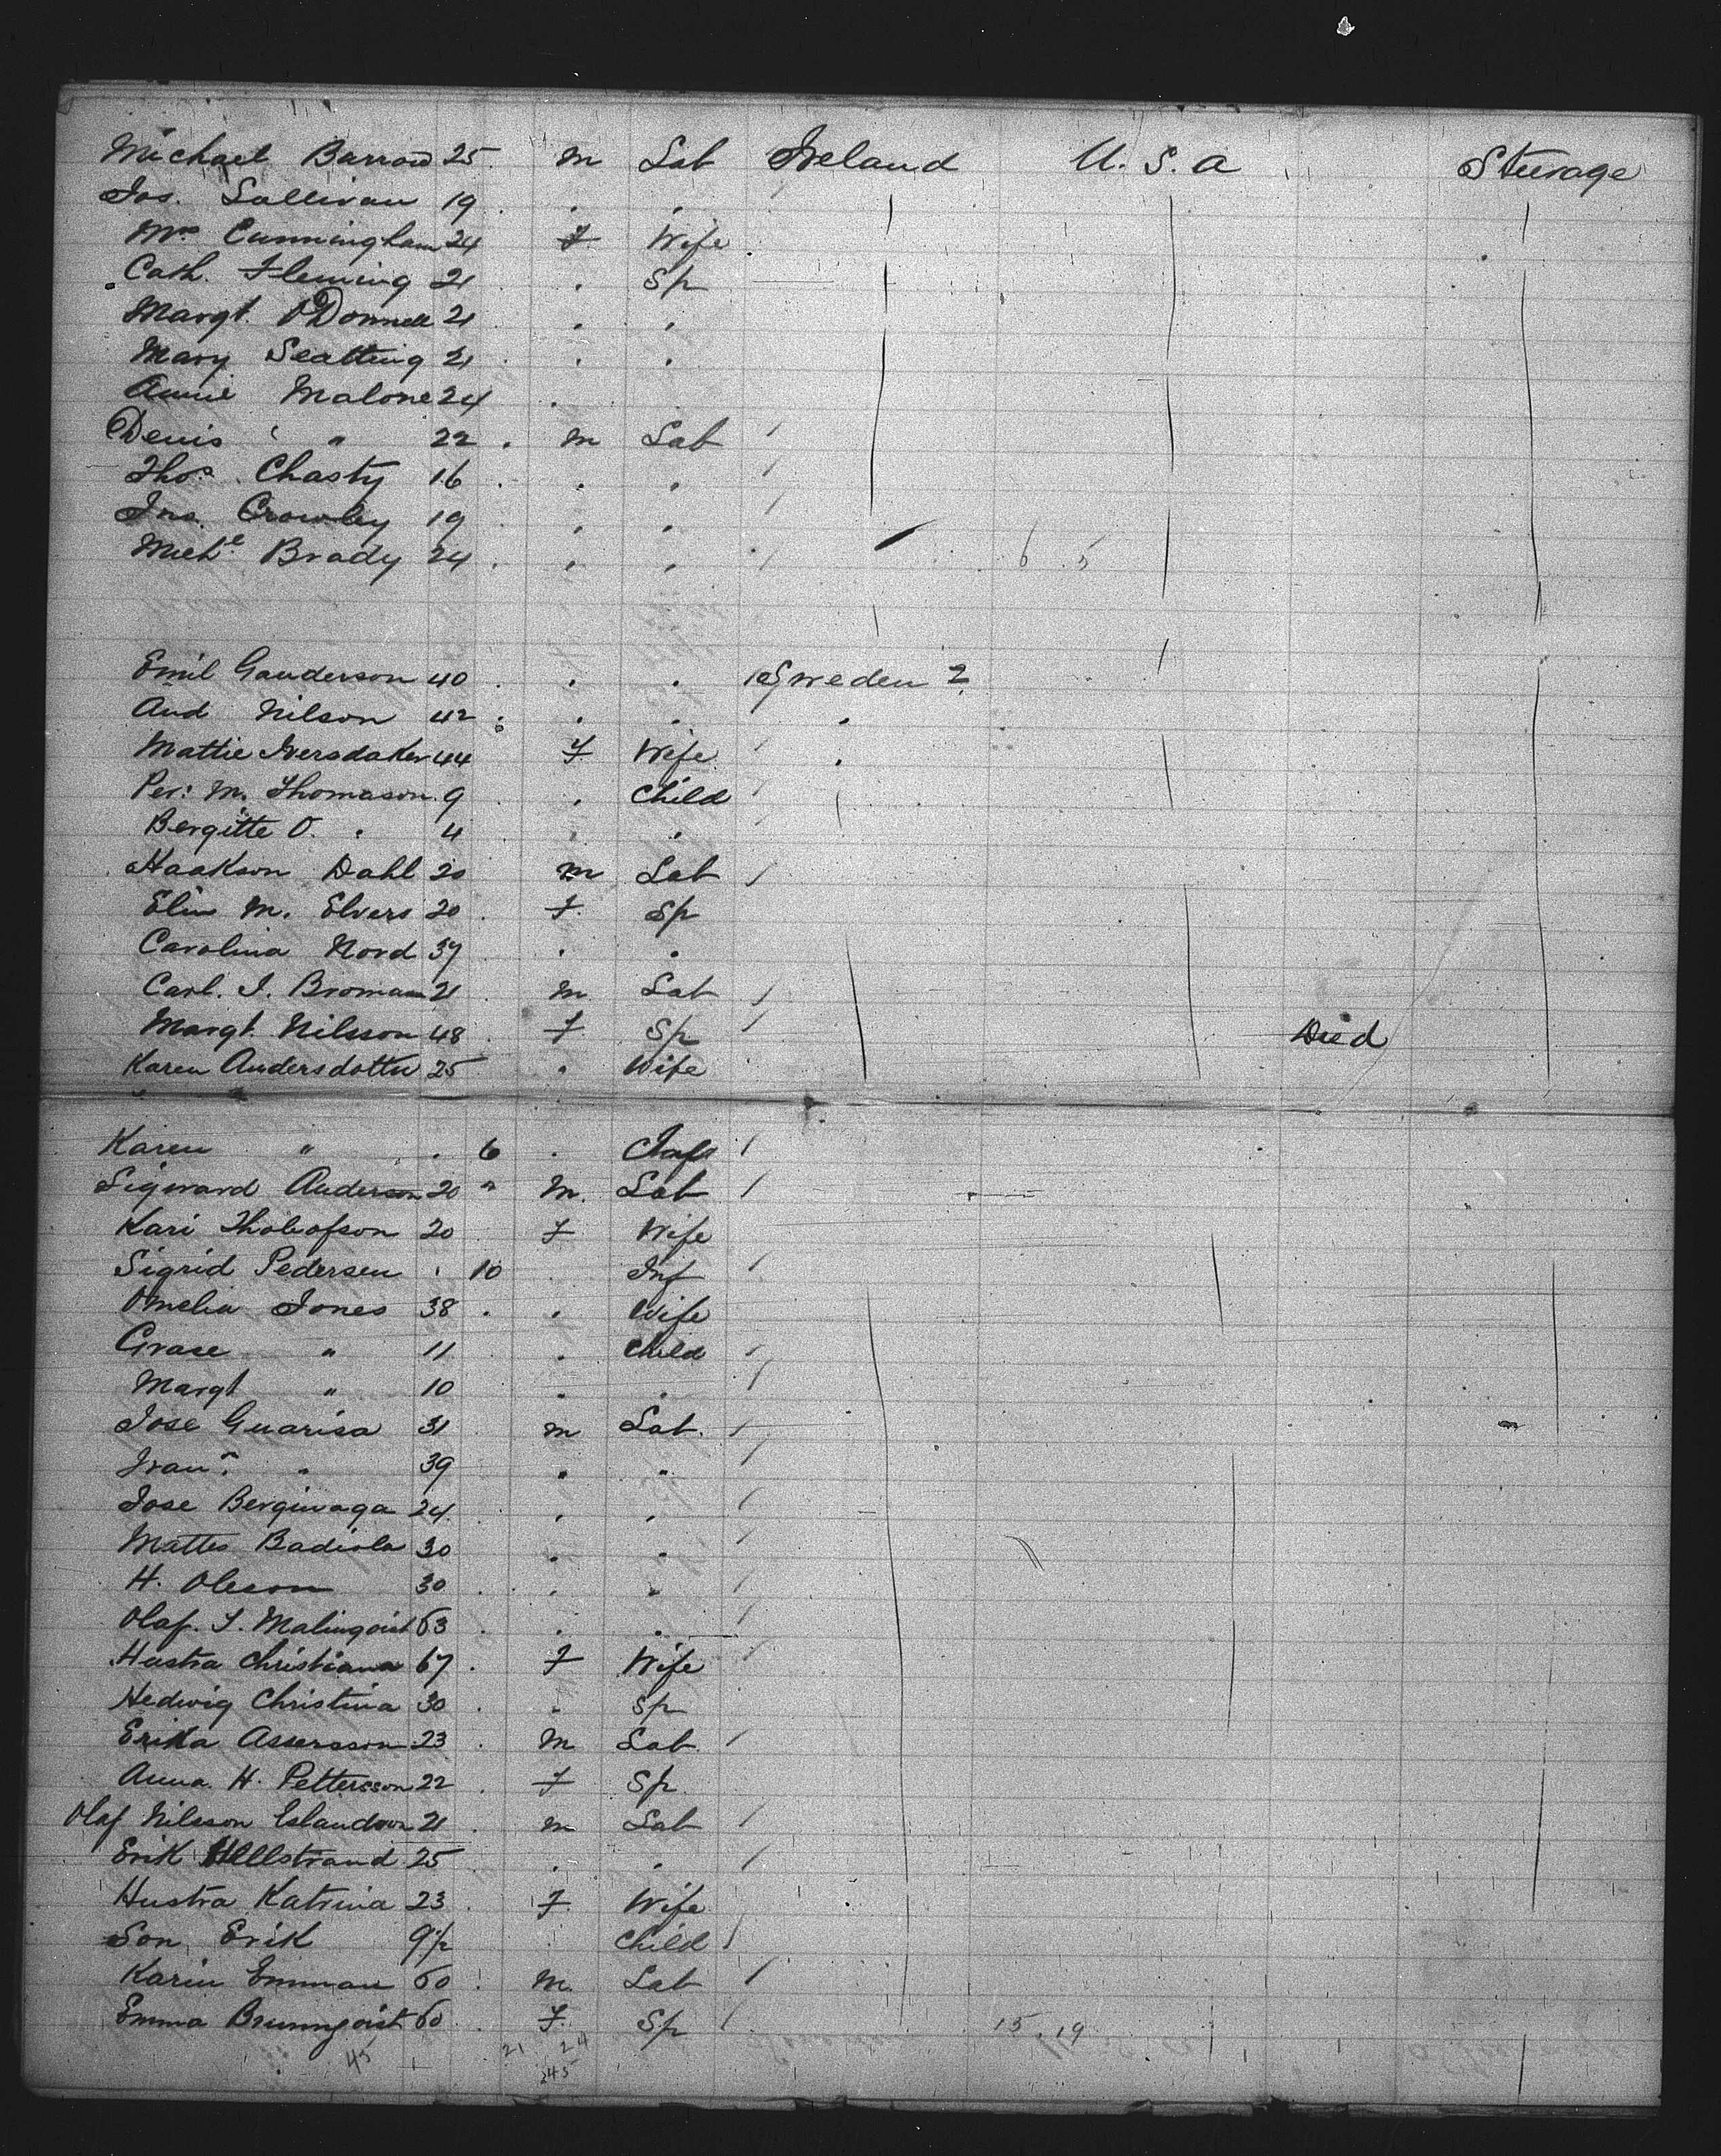 Michael Barrow 25 m Lab Ireland U. S. a Steerage
Jos. Sullivan 19 . .
Mrs Cunningham 24 F Wife
Cath. Fleming 21 . Sp
Margt. O'Donnell 21 . .
Mary 21 . .
Annie Malone 24 .
Denis " 22 . m Lab
Thos. Chasty 16 . . .
Jno. Crowley 19 . .
Miche Brady 24 . . . 6 5
Emil Ganderson 40 . . . Sweden 2
And Nilson 42 . . . .
Mattie 44 F Wife .
Per: M. Thomason 9 . Child
Bergitte O. . 4 . .
Haakson Dahl 20 m Lab
Elin M. Elvers 20 . F. Sp
Carolina Nord 37 . .
Carl. I. Broman 21 . m Lab
Margt. Nilsson 48 . F Sp Died
Karen Andersdotter 25 . Wife
Karen " . 6 .
Sigward Anderson 20 " M. Lab
Kari 20 F Wife
Sigrid Pedersen . 10 Inf
Omelia Jones 38 . . Wife
Grace " 11 . Child
Margt " 10 . .
Jose Guarisa 31 m Lab.
" 39 " "
Jose 24 . .
Mattes Badiola 30 . .
H. Oleson 30 . . .
Olaf. 63 . .
Hustra Christiana 67 . F Wife
Hedwig Christina 30 . . Sp
Erika Assersson 23 . M Lab.
Anna. H. Pettersson 22 . F Sp
Olaf Nilsson 21 . m Lab
Erik Hellstrand 25 . . .
Hustra Katrina 23 . F. Wife
Son Erik Child
Karin Emman 60 . M. Lab
Emma Brunnqvist 60 . F. Sp 15.19
45 21 24
245